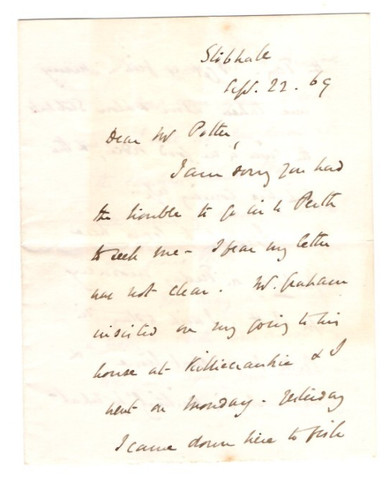 Stobhall
Sept. 22. 69
Dear Mr Potter,
I am sorry you had
the trouble to go in to Perth
to seek me - I fear my letter
was not clear. Mr. Graham
insisted on my going to his
house at Killiecrankie & I
went on Monday - Yesterday
I came down here to fish